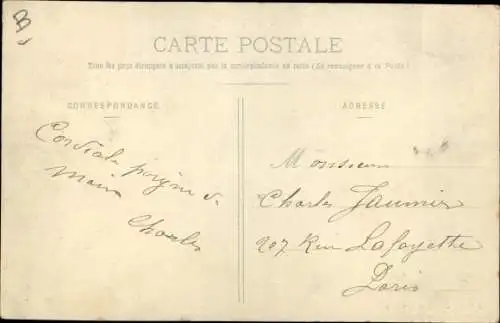 B
CARTE POSTALE
Tous les pays étrangers n'acceptent pas la correspondance au recto (Se renseigner à la Poste)
CORRESPONDANCE
ADRESSE
Cordiale poignée de
main
Charles
Monsieur
Charles Jaumier
207 Rue Lafayette
Paris